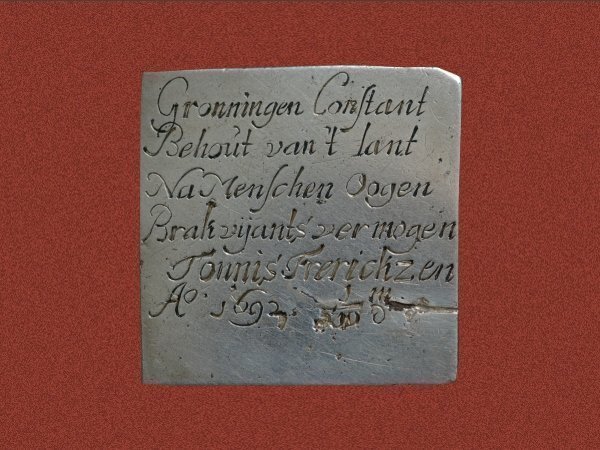 Gronningen Constant
Behout van't lant
Na Menschen Oogen
Brak vijants vermogen
Tounis Frerickzen
Ao. 1692.